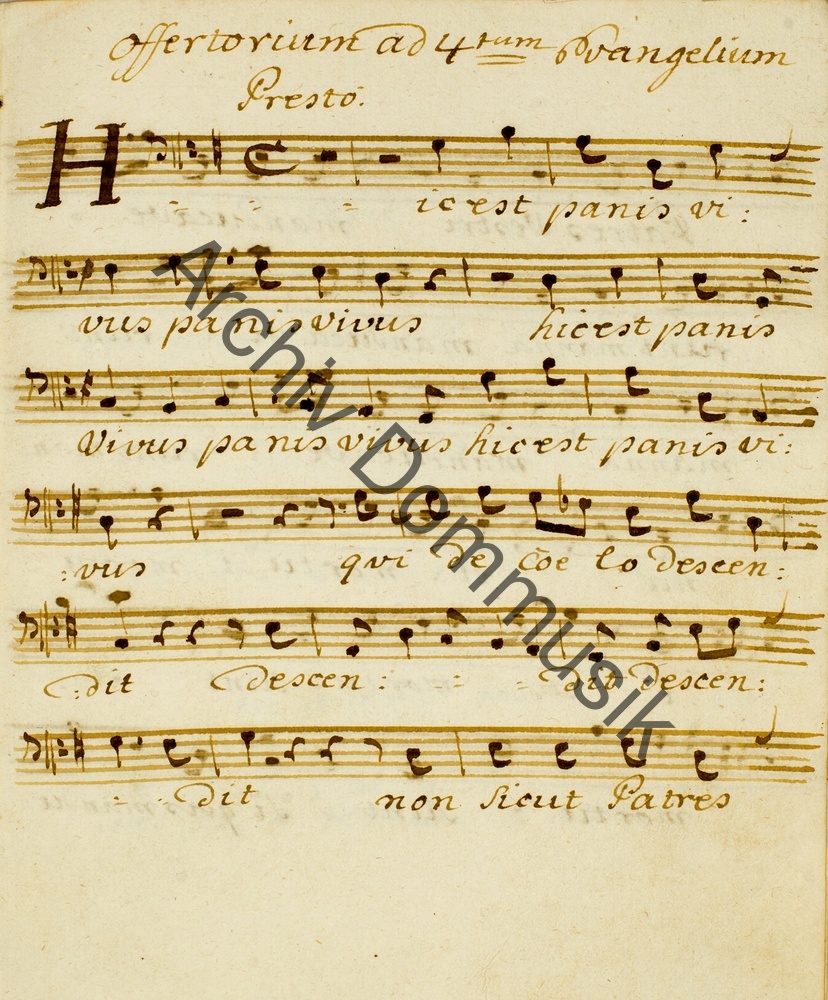 Offertorium ad 4tum Evangelium
Presto.
Hic est panis vi:
vus panis vivus hic est panis
vivus panis vivus hic est panis vi:
:vus qui de Coe lo descen:
:dit descen: dit descen:
dit non sicut Patres
Archiv Dommusik